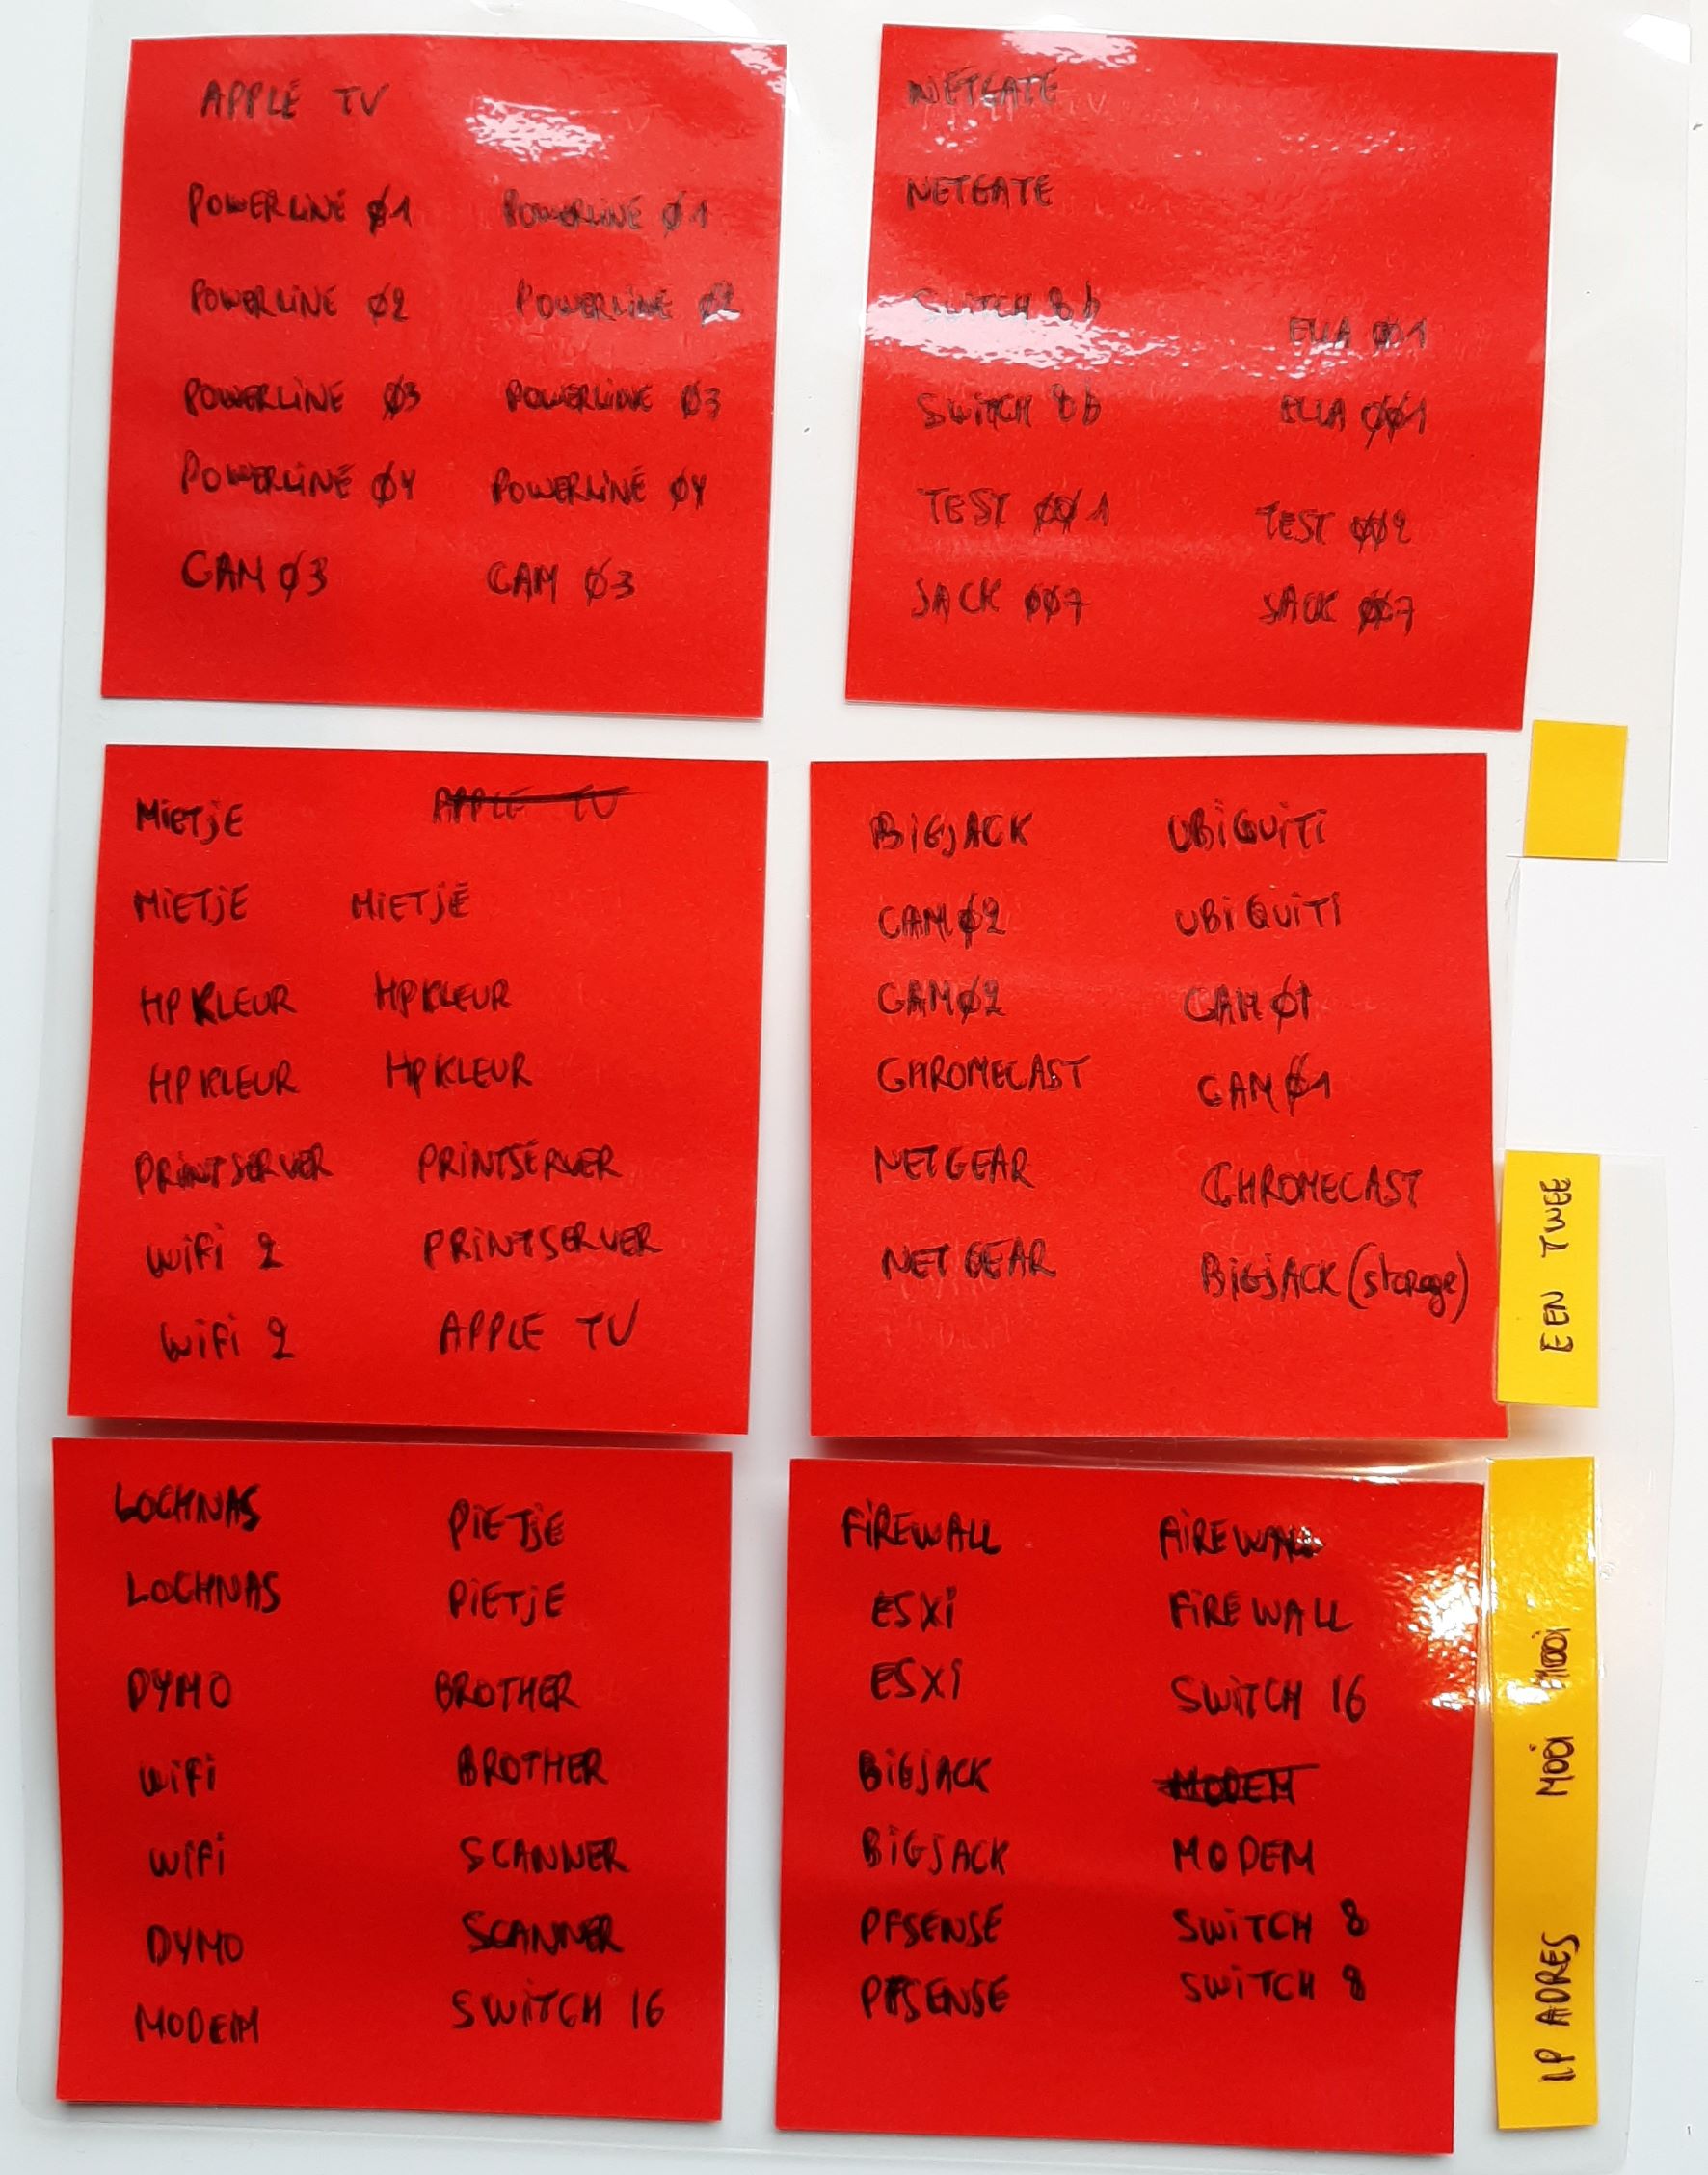 APPLE TV
POWERLINE Ø1 POWERLINE Ø1
POWERLINE Ø2 POWERLINE Ø2
POWERLINE Ø3 POWERLINE Ø3
POWERLINE Ø4 POWERLINE Ø4
CAM Ø3 CAM Ø3
NETGATE
NETGATE
SWITCH 8b ELLA ØØ1
SWITCH 8b ELLA ØØ1
TEST ØØ1 TEST ØØ2
JACK ØØ7 JACK ØØ7
MIETJE APPLE TV
MIETJE MIETJE
HPKLEUR HPKLEUR
HPKLEUR HPKLEUR
PRINTSERVER PRINTSERVER
WIFI 2 PRINTSERVER
WIFI 2 APPLE TV
BIGJACK UBIQUITI
CAMØ2 UBIQUITI
CAMØ2 CAMØ1
CHROMECAST CAMØ1
NETGEAR CHROMECAST
NETGEAR BIGJACK (storage)
EEN TWEE
LOCHNAS PIETJE
LOCHNAS PIETJE
DYMO BROTHER
WIFI BROTHER
WIFI SCANNER
DYMO SCANNER
MODEM SWITCH 16
FIREWALL FIREWALL
ESXI FIREWALL
ESXI SWITCH 16
BIGJACK MODEM
BIGJACK MODEM
PFSENSE SWITCH 8
PFSENSE SWITCH 8
IP ADRES MOOI MOOI